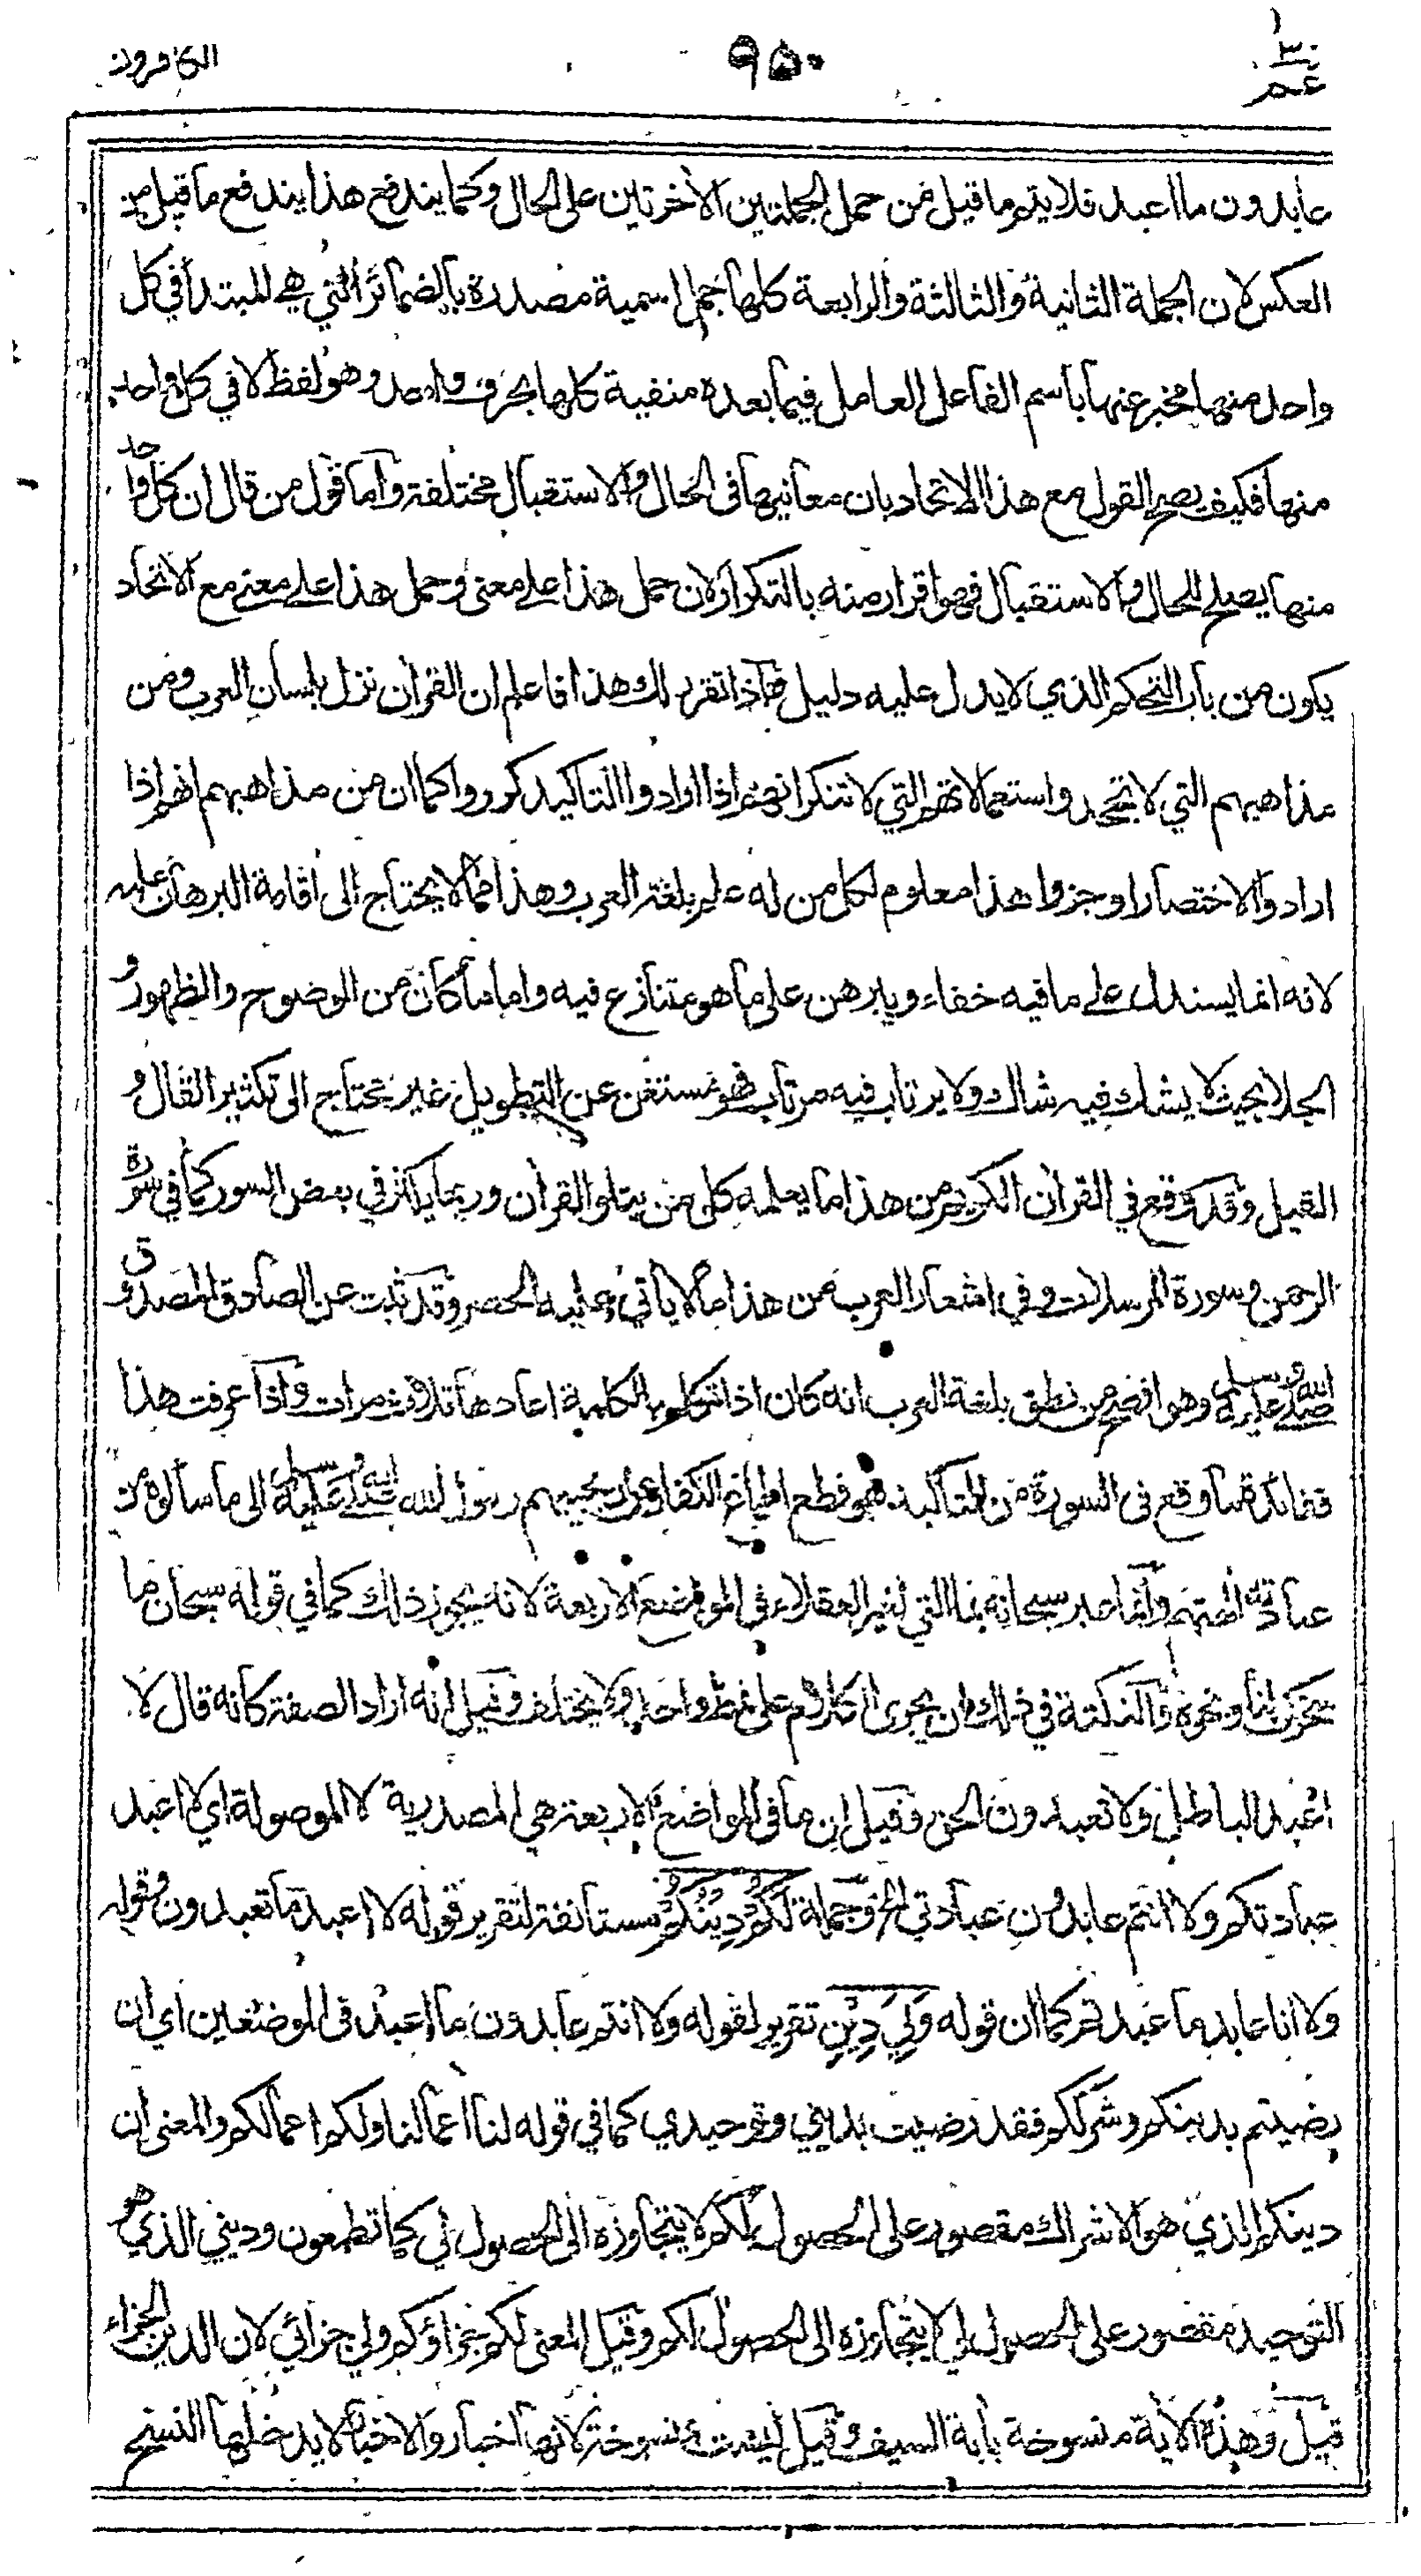 عم ٣٠
٩٥٠
الكافرون
عابدون ما اعبد فلا يتم ما قيل من حمل الجملتين الأخرتين على الحال وكما يندفع هذا يندفع ما قيل من
العكس لان الجملة الثانية والثالثة والرابعة كلها جمل اسمية مصدرة بالضمائر التي هي للمبتدأ في كل
واحد منها مخبر عنها باسم الفاعل العامل فيما بعده منفية كلها بحرف واحد وهو لفظ لا في كل واحد
منها فكيف يصح القول مع هذا الاتحاد بان معانيها في الحال والاستقبال مختلفة واما قول من قال ان كل واحد
منها يصلح للحال والاستقبال فهو اقرار منه بالتكرار لان حمل هذا على معنى وحمل هذا على معنى مع الاتحاد
يكون من باب التحكم الذي لا يدل عليه دليل فاذا تقرر لك هذا فاعلم ان القرآن نزل بلسان العرب ومن
مذاهبهم التي لا تجحد واستعمالاتهم التي لا تنكر انهم اذا ارادوا التاكيد كرروا كما ان من مذاهبهم انهم اذا
ارادوا الاختصار اوجزوا هذا معلوم لكل من له علم بلغة العرب وهذا مما لا يحتاج الى اقامة البرهان عليه
لانه انما يستدل على ما فيه خفاء ويبرهن على ما هو متنازع فيه واما ما كان من الوضوح والظهور و
الجلاء بحيث لا يشك فيه شاك ولا يرتاب فيه مرتاب فهو مستغن عن التطويل غير محتاج الى تكثير القال و
القيل وقد وقع في القرآن الكريم من هذا ما يعلمه كل من يتلو القرآن وربما يكثر في بعض السور كما في سورة
الرحمن وسورة المرسلات وفي اشعار العرب من هذا ما لا يأتي عليه الحصر وقد ثبت عن الصادق المصدوق
صلى الله عليه وسلم وهو افصح من نطق بلغة العرب انه كان اذا تكلم بالكلمة اعادها ثلاث مرات واذا عرفت هذا
ففائدة ما وقع في السورة من التاكيد هو قطع اطماع الكفار عن ان يجيبهم رسول الله صلى الله عليه وسلم الى ما سألوه من
عبادة الهتهم وانما عبر سبحانه بما التي لغير العقلاء في المواضع الاربعة لانه يجوز ذلك كما في قوله سبحان ما
سخركن لنا ونحوه والنكتة في ذلك ان يجري الكلام على نمط واحد ولا يختلف وقيل انه اراد الصفة كانه قال لا
اعبد الباطل ولا تعبدون الحق وقيل ان ما في المواضع الاربعة هي المصدرية لا الموصولة اي لا اعبد
عبادتكم ولا انتم عابدون عبادتي الخ وجملة لَكُمْ دِينُكُمْ مستانفة لتقرير قوله لا اعبد ما تعبدون وقوله
ولا انا عابد ما عبدتم كما ان قوله وَلِيَ دِيْنِ تقرير لقوله ولا انتم عابدون ما اعبد في الموضعين اي ان
رضيتم بدينكم وشرككم فقد رضيت بديني وتوحيدي كما في قوله لنا اعمالنا ولكم اعمالكم والمعنى ان
دينكم الذي هو الاشراك مقصور على الحصول لكم لا يتجاوزه الى الحصول لي كما تطمعون وديني الذي هو
التوحيد مقصور على الحصول لي لا يتجاوزه الى الحصول لكم وقيل المعنى لكم جزاؤكم ولي جزائي لان الدين الجزاء
قيل وهذه الآية منسوخة بآية السيف وقيل ليست بمنسوخة لانها اخبار والاخبار لا يدخلها النسخ